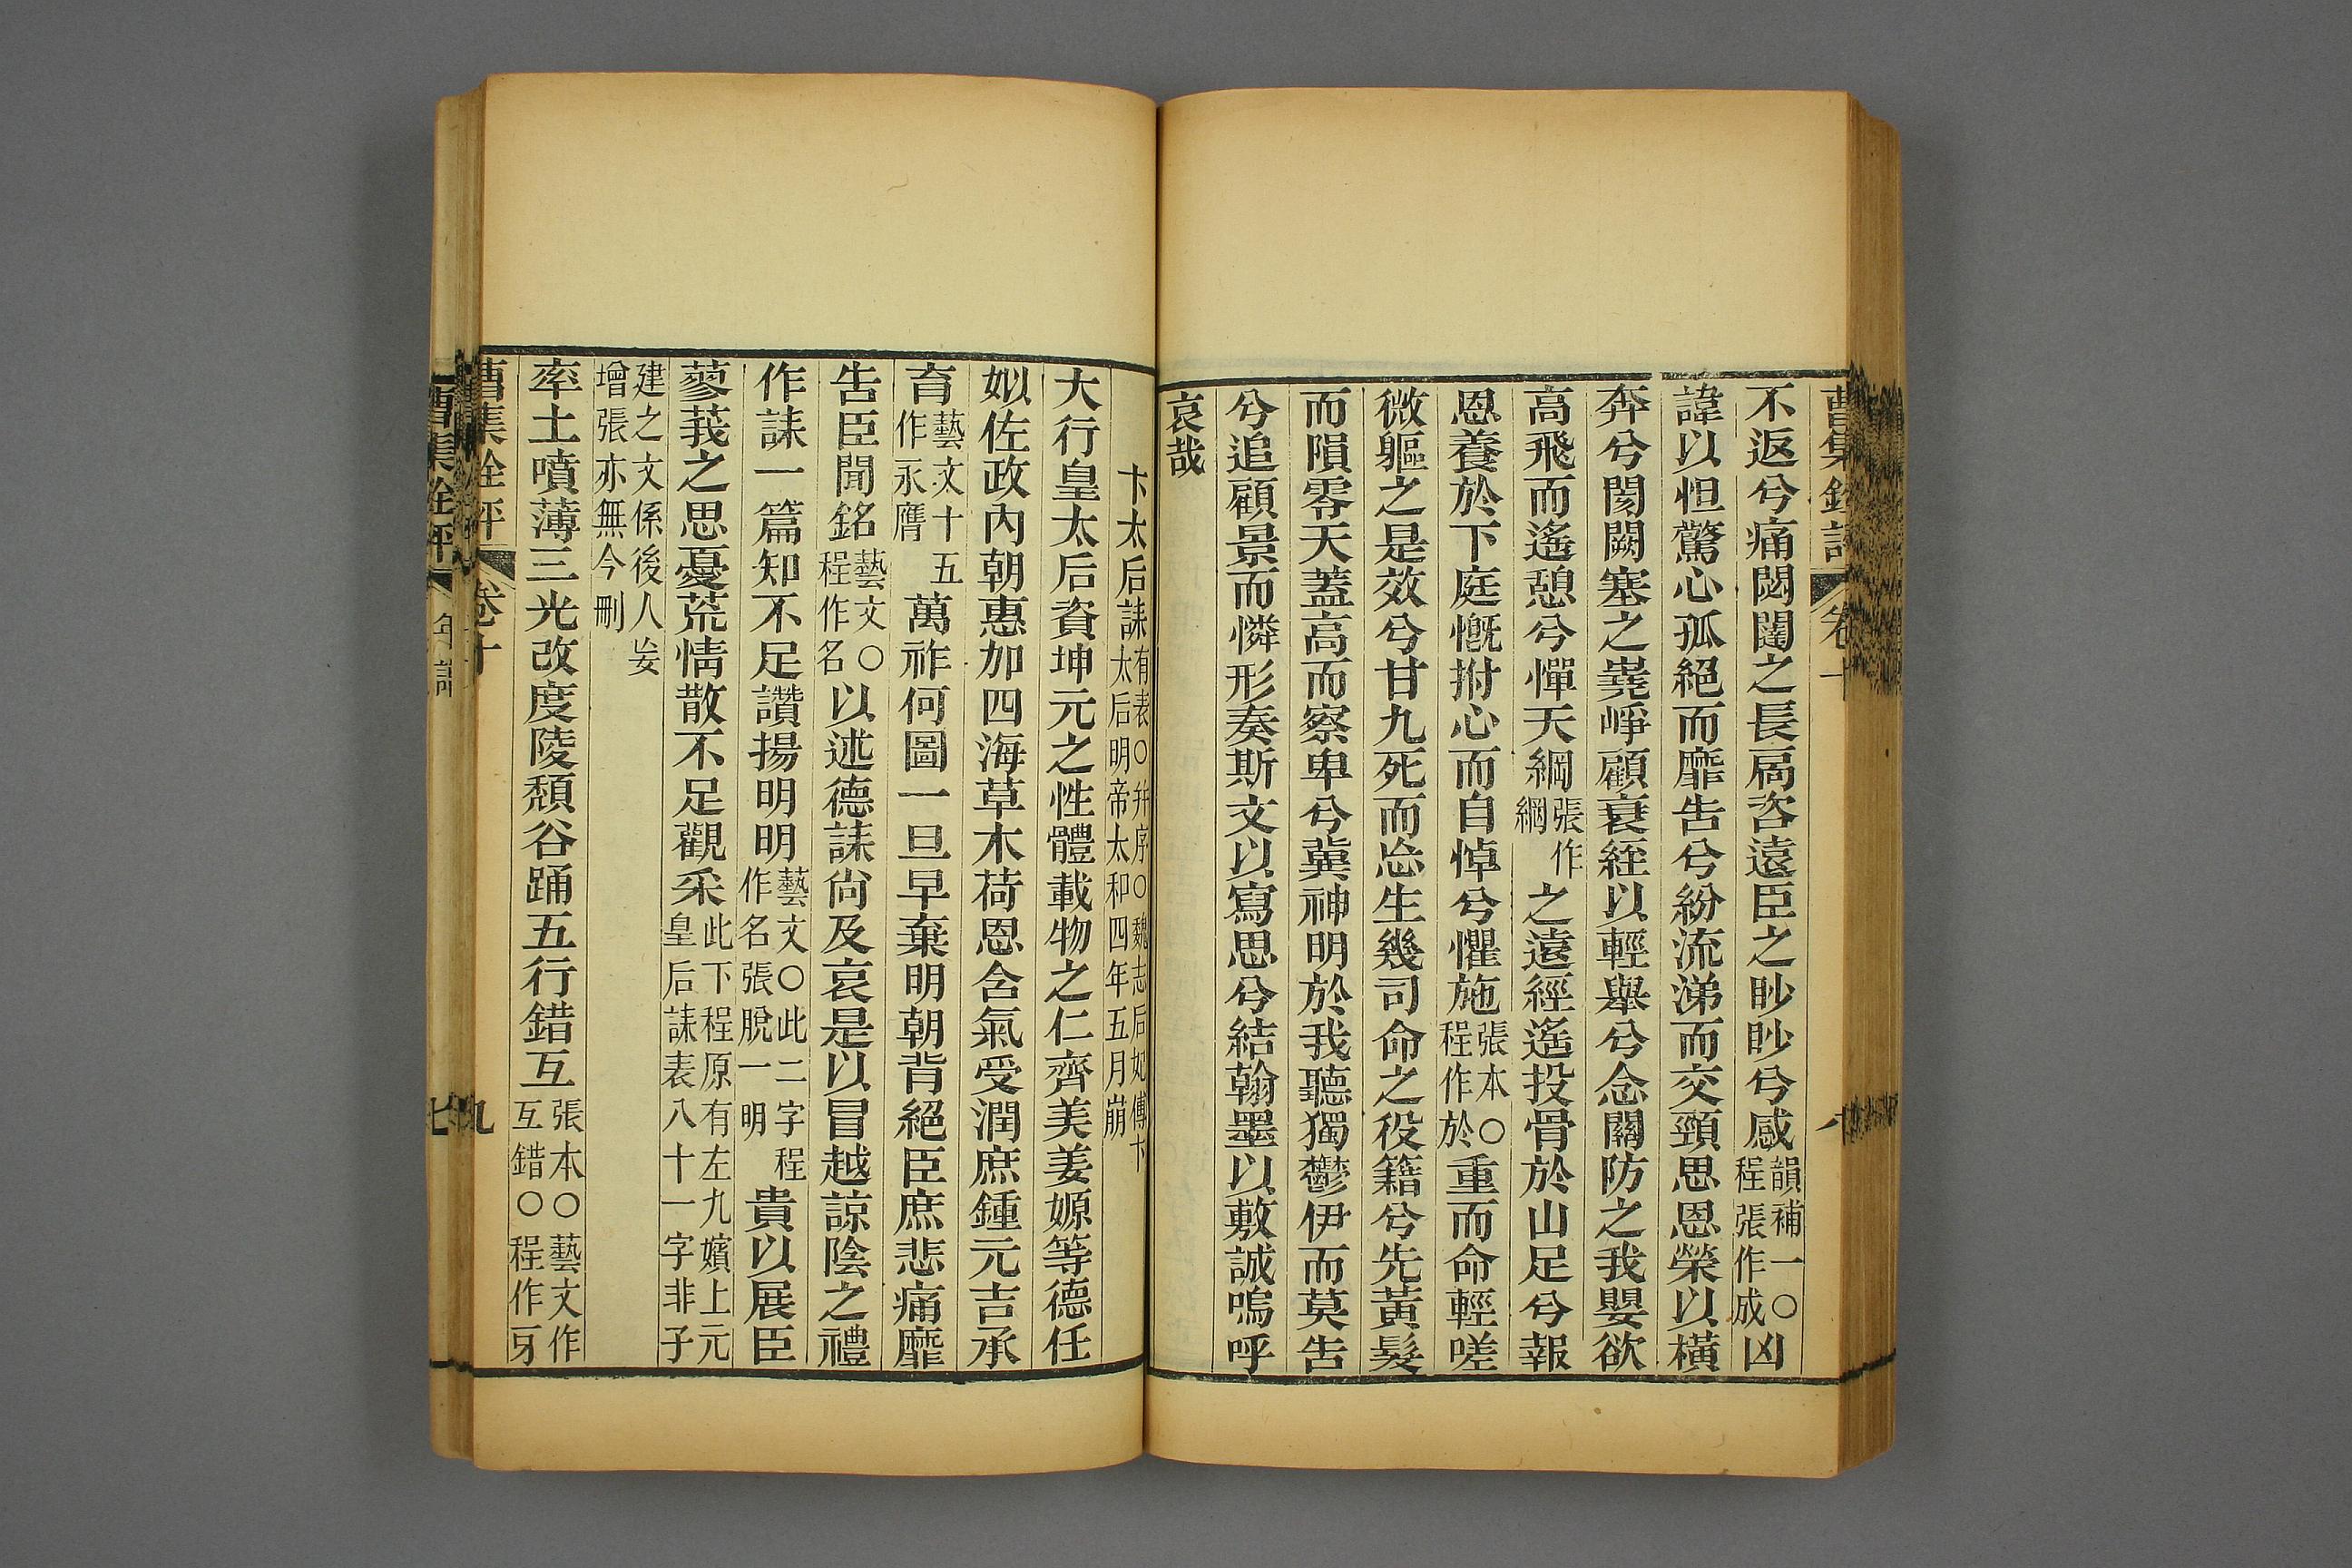 曹集銓評 卷十 八
不返兮痛閟闥之長扃咨遠臣之眇眇兮感韻補一○程張作成凶
諱以怛驚心孤絕而靡告兮紛流涕而交頸思恩榮以橫
奔兮閡闕塞之嶤崢顧衰絰以輕舉兮念關防之我嬰欲
高飛而遙憩兮憚天網張作綱之遠經遙投骨於山足兮報
恩養於下庭慨拊心而自悼兮懼施張本○程作於重而命輕嗟
微軀之是效兮甘九死而忘生幾司命之役籍兮先黃髮
而隕零天蓋高而察卑兮冀神明於我聽獨鬱伊而莫告
兮追顧景而憐形奏斯文以寫思兮結翰墨以敷誠嗚呼
哀哉
卞太后誄有表○并序○魏志后妃傳卞太后明帝太和四年五月崩
大行皇太后資坤元之性體載物之仁齊美姜嫄等德任
姒佐政內朝惠加四海草木荷恩含氣受潤庶鍾元吉承
育藝文十五作永膺萬祚何圖一旦早棄明朝背絕臣庶悲痛靡
告臣聞銘藝文○程作名以述德誄尚及哀是以冒越諒陰之禮
作誄一篇知不足讚揚明明藝文○此二字程作名張脫一明貴以展臣
蓼莪之思憂荒情散不足觀采此下程原有左九嬪上元皇后誄表八十一字非子
建之文係後人妄增張亦無今刪
率土噴薄三光改度陵頹谷踊五行錯互張本○藝文作互錯○程作㸦
曹集銓評 卷十 九
曹集銓評 年譜 七